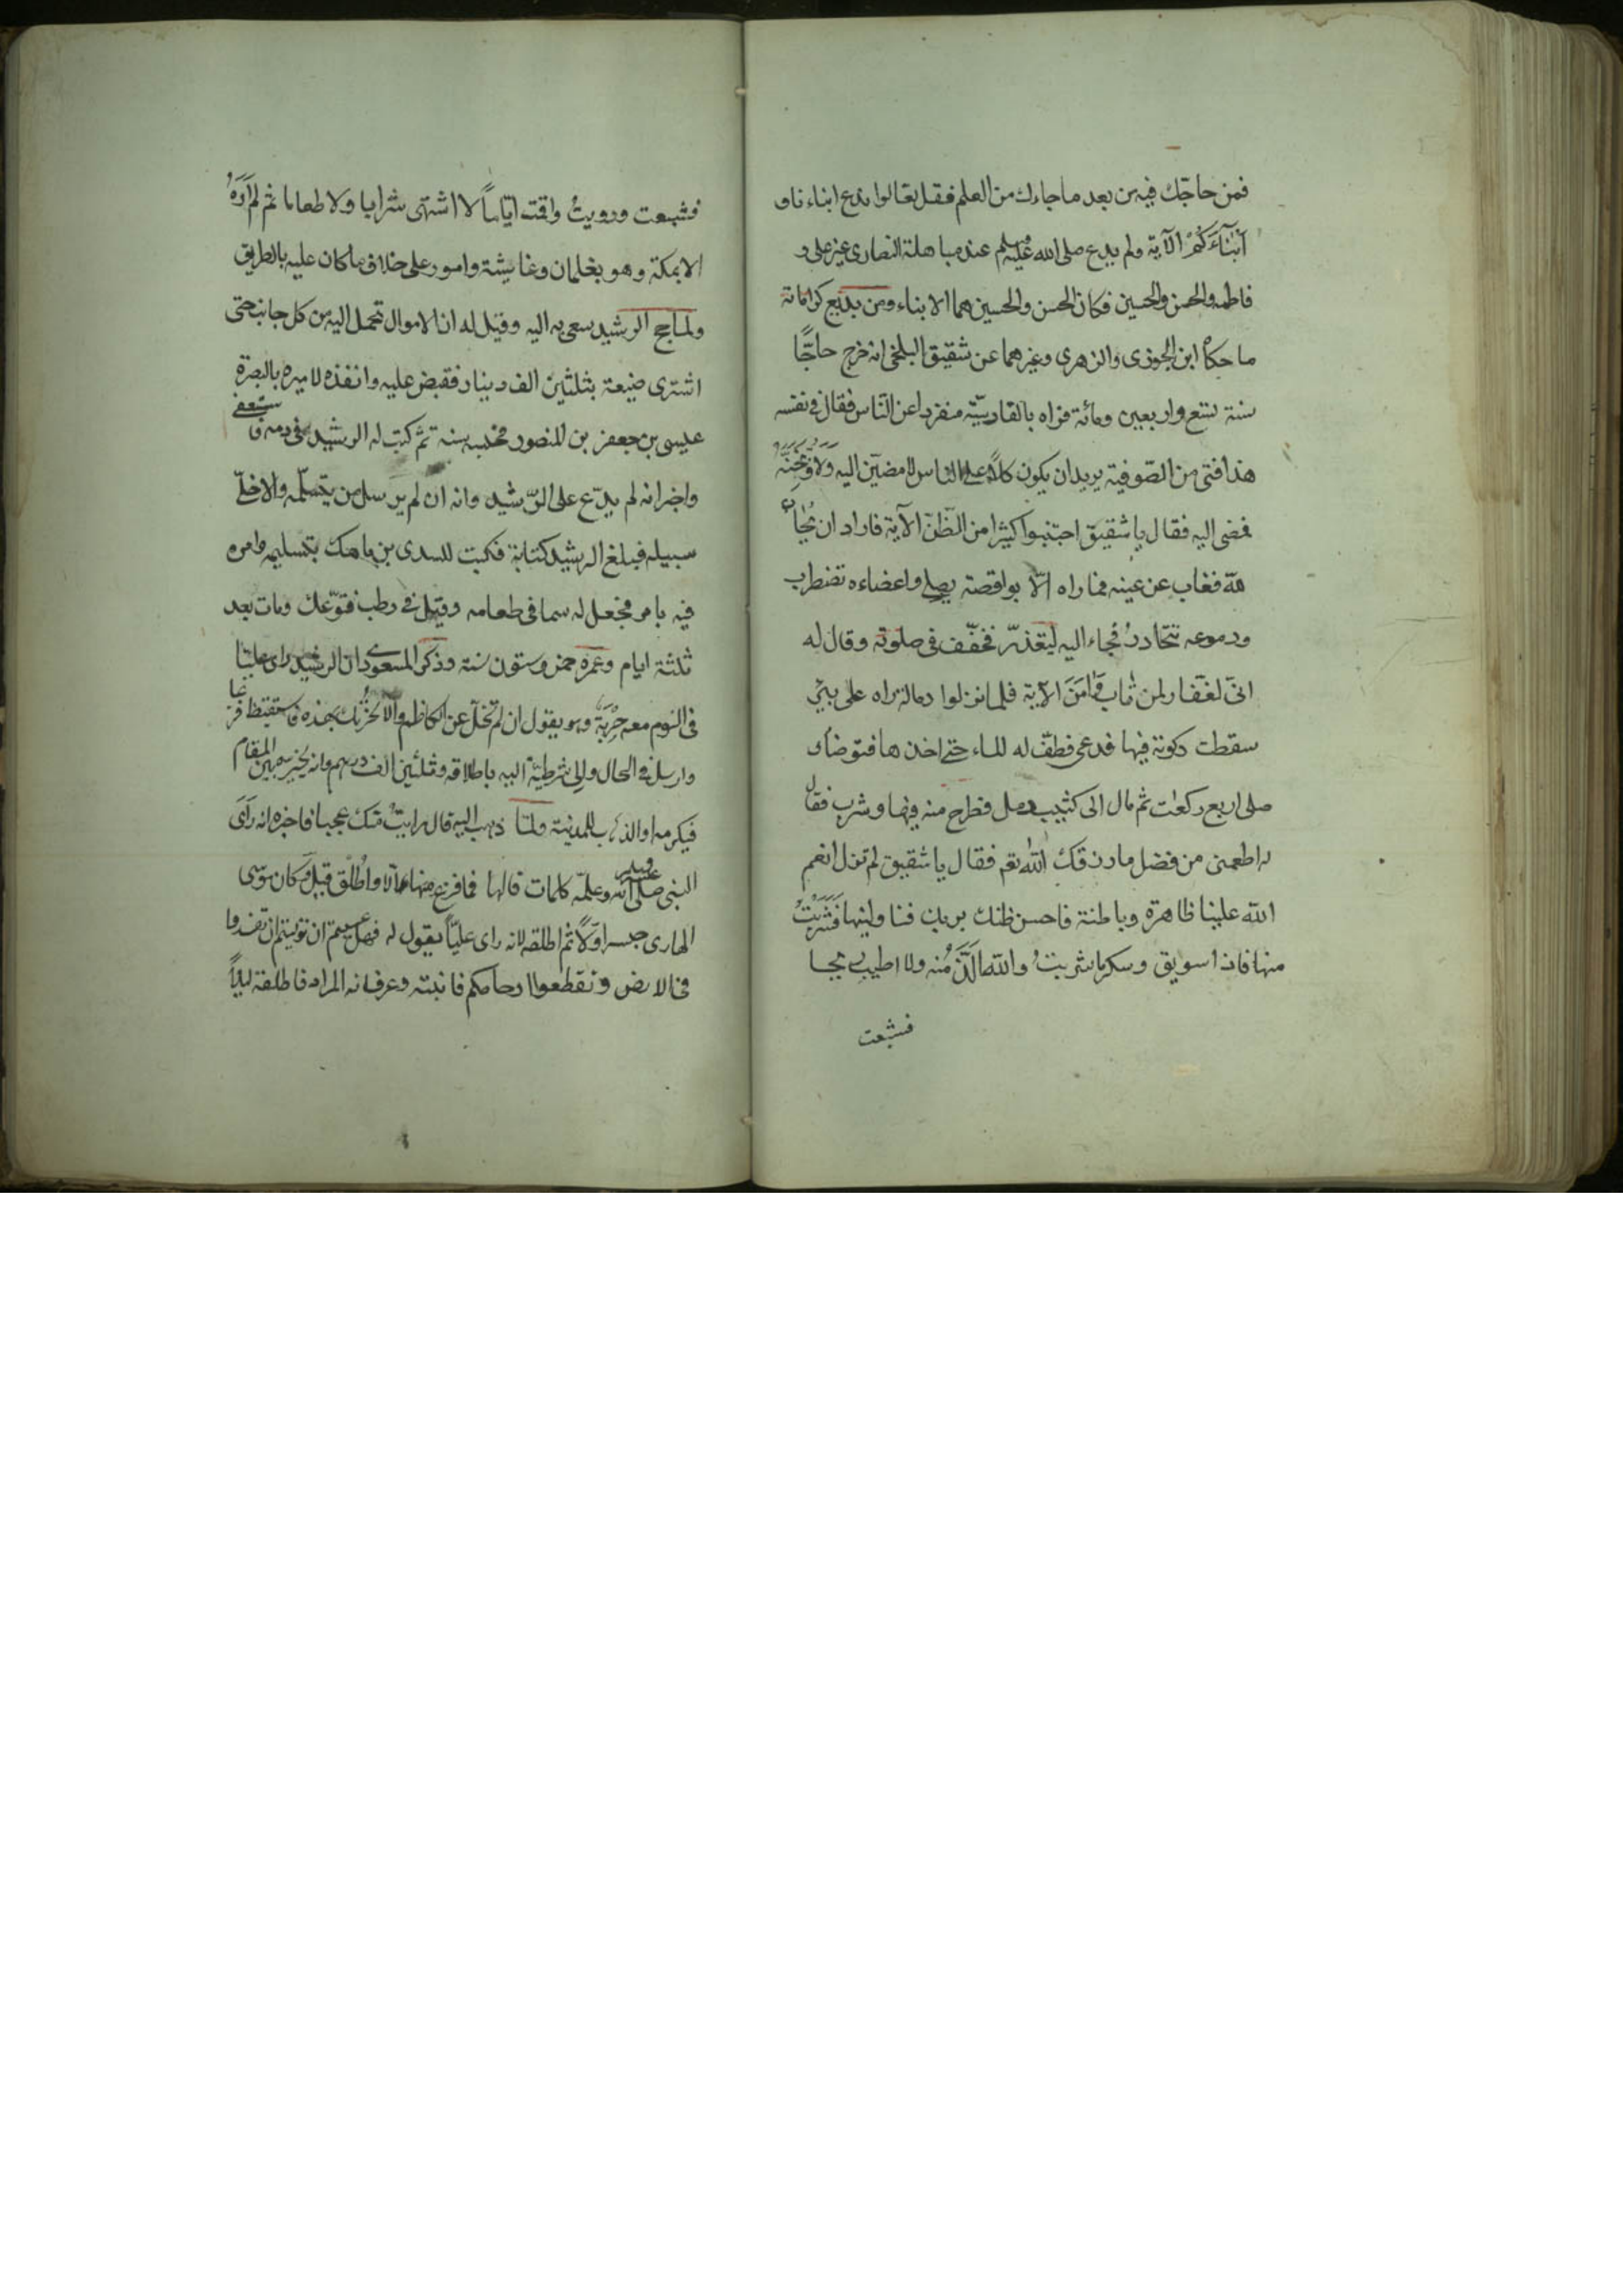 فمن حاجّك فيه من بعد ماجاءك من العلم فقل تعالوا ندع ابناء ناو
اَبْنَآءَكُمْ الآية ولم يدع صلى الله عليه وسلم عند مباهلة النصارى غير على و
فاطمه والحسن والحسين فكان الحسن والحسين هما الابناء ومن بديع كراماته
ما حكاه ابن الجوزى والزهرى وغيرهما عن شقيق البلخى انه خرج حاجًّا
سنة تسع واربعين ومائة فراه بالقادسيّة منفردا عن النّاس فقال فى نفسه
هذا فتى من الصّوفية يريد ان يكون كلاًّ على الناس لامضينّ اليه وَلَاُوَبِّخَنَّهُ
فمضى اليه فقال يا شقيق اجتنبوا كثيرا من الظّنّ الآية فاراد ان
فغاب عن عينه فما راه الّا بواقصة يصلى واعضاءه تضطرب
ودموعه تتحادرُ فجاء اليه ليتعذّر فخفّف فى صلوته وقال له
انىّ لغفّار لمن تاب وَاٰمَنَ الآية فلما نزلوا راه على بئر
سقطت ركوته فيها فدعى فطفّ له الماء حتى اخذها فتوضأ و
صلى اربع ركعٰت ثم مال الى كثيب رمل فطرح منه فيها وشرب فقال
له اطعمنى من فضل مارزقك اللهُ تعم فقال يا شقيق لم تزل انعم
الله علينا ظاهرة وباطنة فاحسن ظنك بربك فناولنيها فَشَرِبْتُ
منها فاذا سويق وسكر ما شربتُ والله اَلَذَّ مُنه ولا اطيب ريحا
فشبعت
فشبعت ورويتُ واقمت ايّامًا لا اشتهى شرابا ولا طعاما ثم لم اَرَهُ
الا بمكة وهو بغلمان وغاشية وامور على خلاف ما كان عليه بالطريق
ولمّا حج الرشيد سعى به اليه وقيل له ان الاموال تحمل اليه من كل جانب حتى
اشترى ضيعة بثلثين الف دينار فقبض عليه وانفذه لاميره بالبصرة
عيسى بن جعفر بن المنصور فحبسه سنة ثمّ كتب له الرشيد فى دمه فاستعفى
واخبر انه لم يدّع على الرّشيد وانه ان لم يرسل من يتسلّمه والا خلّى
سبيله فبلغ الرشيد كتابة فكتب للسدى بن ماهك بتسليمه وامره
فيه بامر فجعل له سما فى طعامه وقيل فى رطب فتوّعك ومات بعد
ثلثة ايام وعمره خمس وستون سنة وذكر المسعودى ان الرشيد راى عليّا
فى النوم معه حِرْبَةٌ وهو يقول ان لم تخلّ عن الكاظم والا نحرتك بهذه فاستيقظ فزعا
وارسل فى الحال والى شرطيّة اليه باطلاقه وثلثين الف درهم وانه يخيره بين المقام
فيكرمه او الذهاب للمدينة ولمّا ذهب اليه قال رايتُ منك عجبا فاخبره انه رَاَى
النبى صلى الله عليه وسلم وعلمّه كلمات قالها فما فرغ منها الّا واُطْلق قيل وَكان موسى
الهادى حبسه اوّلاً ثم اطلقه لانه راى عليّاً يقول له فهل عسيتم ان توليتم ان تفسدوا
فى الارض وتقطعوا ارحامكم فانتبه وعرف انه المراد فاطلقه ليلاً